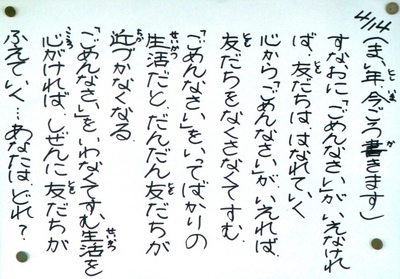 4/14(まい年、今ごろ書きます)
すなおに「ごめんなさい」が いえなけれ
ば、友だちは はなれていく
心から「ごめんなさい」が いえれば、
友だちをなくさなくてすむ。
「ごめんなさい」をいってばかりの
生活だと、だんだん友だちが
近づかなくなる
「ごめんなさい」を いわなくてすむ生活を
心がければ、しぜんに友だちが
ふえていく…あなたは、どれ?